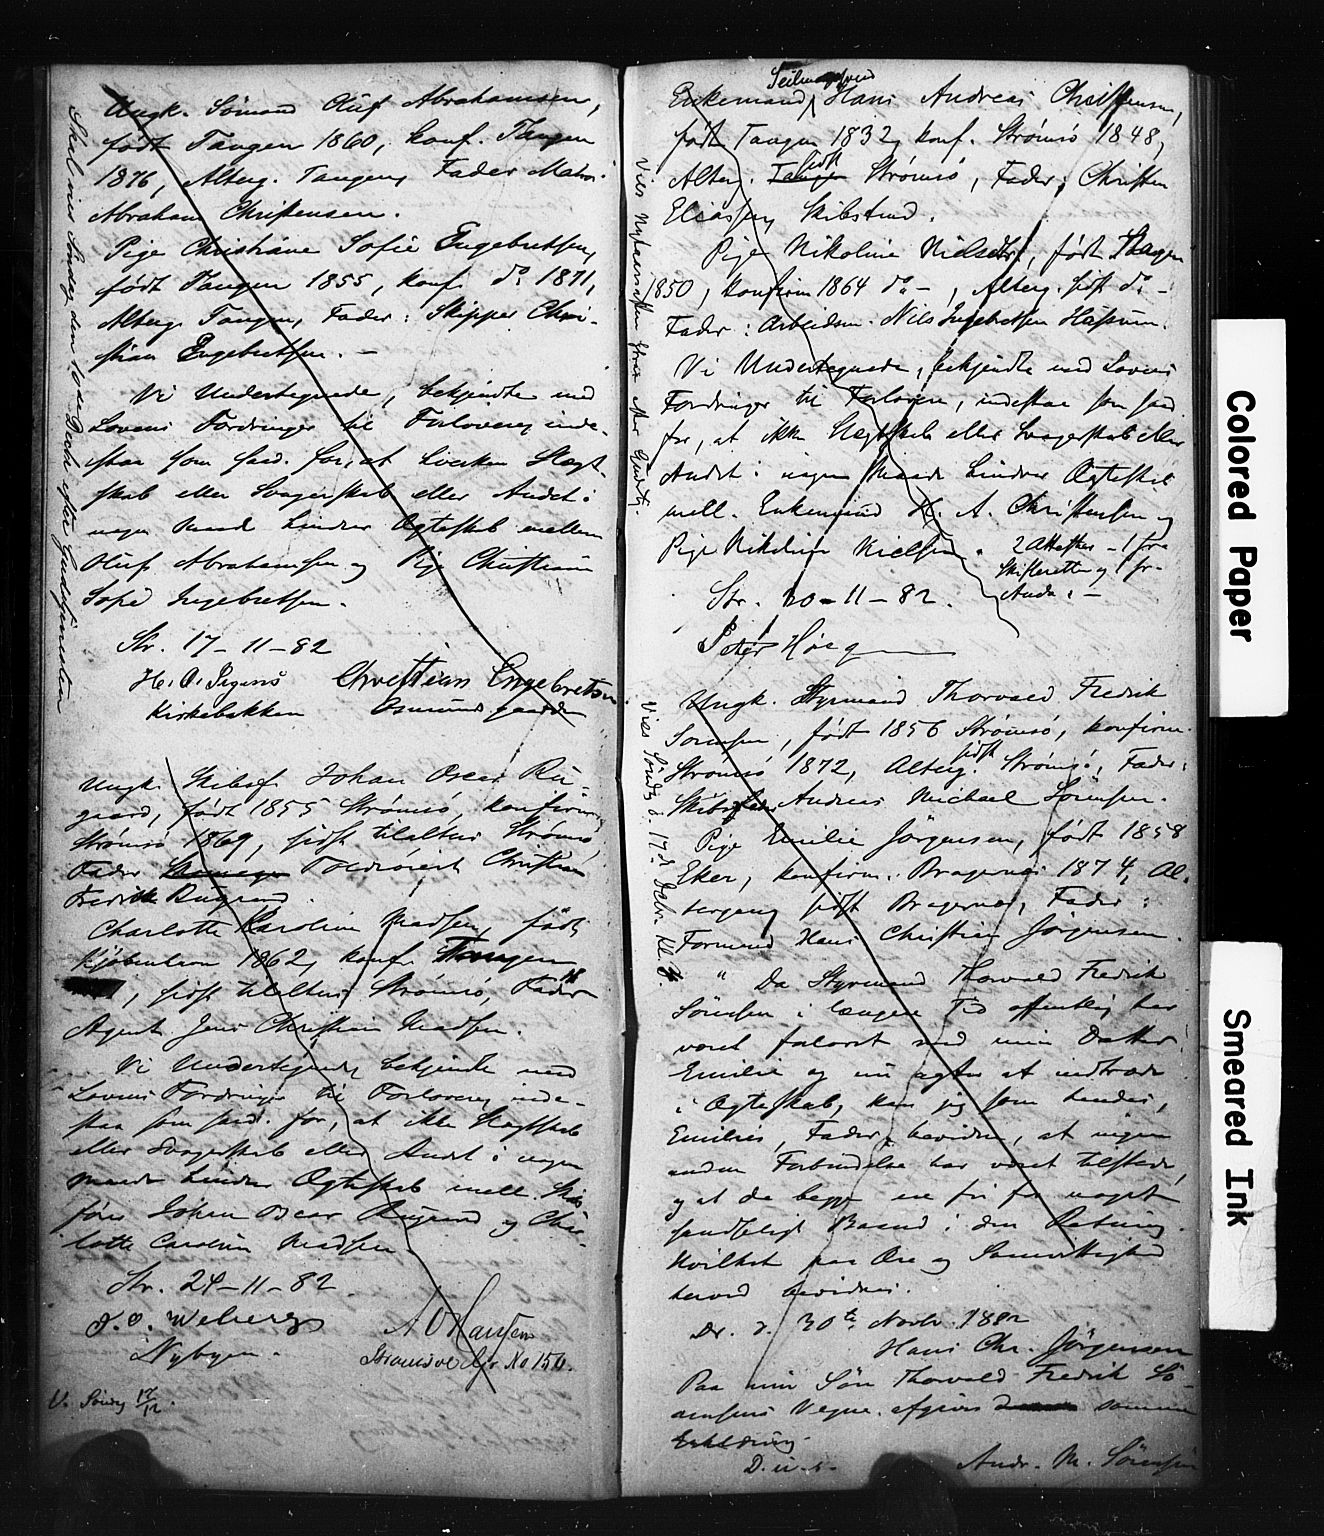 Ungk. Sømand Oluf Abrahamsen,
født Tangen 1860, konf. Tangen
1876, Alterg. Tangen, Fader Matros
Abraham Christensen.
Pige Christiane Sofie Engebretsen,
født Tangen 1855, konf. do 1871,
Alterg. Tangen, Fader: Skipper Chri-
stian Engebretsen. –
Vi Undertegnede, bekjendte med
Lovens Fordringer til Forlovere, inde-
staa som saad. for, at hverken Slægt-
skab eller Svogerskab eller Andet i
nogen Maade hindrer Ægteskab mellem
Oluf Abrahamsen og Pige Christiane
Sofie Engebretsen.
Str. 17-11-82
Christian Engebretsen
Kirkebakken
Skal vies Søndag den 10de Decbr. efter Gudstjenesten
Ungk. Skibsf. Johan Oscar Rü-
gaard, født 1855 Strømsö, konfirm.
Strømsö 1869, sidst tilalters Strømsö,
Fader Christian
Fredrik
Charlotte Karoline Madsen, født
Kjøbenhavn 1862, konf. Tangen
, sidst tilalters Strømsö, Fader
Agent Jens Christian Madsen.
Vi Undertegnede bekjendte med
Lovens Fordringer til Forlovere, inde-
staa som saad. for, at ikke Slægtskab
eller Svogerskab eller Andet i nogen
Maade hindrer Ægteskab mell. Skibs-
fører Johan Oscar og Char-
lotte Caroline Madsen.
Str. 24-11-82.
Weberg
Nybyen.
A O Hansen
No 156.
V. Søndag 17/12.
Seilmagersvend
Enkemand, Hans Andreas Christensen,
født Tangen 1832, konf. Strømsö 1848,
Alterg. sidst Strømsö, Fader, Christen
Eliassen, Skibstmd.
Pige Nikoline Nielsen, født Tangen
1850, konfirm 1864 do –, Alterg. sidst do –
Fader: Arbeidsm. Nils Ingebretsen
Vi Undertegnede, bekjendte med Lovens
Fordringer til Forlovere, indestaa som saad.
for, at ikke Slægtskab eller Svogerskab eller
Andet i nogen Maade hindrer Ægteskab
mell. Enkemand H. A. Christensen og
Pige Nikoline Nielsen.
2 Attester – 1 fra
Skifteretten og 1 fr.
Str. 20-11-82.
Peter
Ungk. Styrmand Thorvald Fredrik
Sørensen, født 1856 Strømsö, konfirm.
Strømsö 1872, Alterg. sidst Strømsö, Fader:
Andreas Michael Sörensen.
Pige Emilie Jörgensen, født 1858
Eker, konfirm. Bragernes 1874, Al-
tergang sidst Bragernes, Fader:
Formand Hans Christian Jörgensen.
" Da Styrmand Thorvald Fredrik
Sörensen i længere Tid offentlig har
været forlovet med min Datter
Emilie og nu agter at indtræde
i Ægteskab, kan jeg som hendes,
Emilies, Fader, bevidne, at ingen
anden Forbindelse har været tilstede,
og at de begge ere fri for noget
Baand i den Retning.
Hvilket paa Ære og Samvittighed
herved bevidnes.
Dr. d. 30te Novbr 1882
Hans Chr. Jörgensen
Paa min Søn Thorvald Fredrik Sö-
rensens Vegne afgives samme
Erklæring.
D. u. s.
Andr. M. Sörensen
Vies Søndag d. 17de Decbr. Kl.
Colored Paper
Smeared Ink